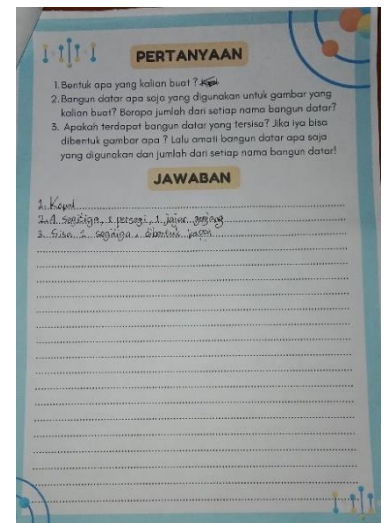 PERTANYAAN
1. Bentuk apa yang kalian buat ?
2. Bangun datar apa saja yang digunakan untuk gambar yang
kalian buat? Berapa jumlah dari setiap nama bangun datar?
3. Apakah terdapat bangun datar yang tersisa? Jika iya bisa
dibentuk gambar apa ? Lalu amati bangun datar apa saja
yang digunakan dan jumlah dari setiap nama bangun datar!
JAWABAN
1. Kapal
2. 4 segitiga, 1 persegi, 1 jajar genjang
3. Sisa 2 segitiga, dibentuk